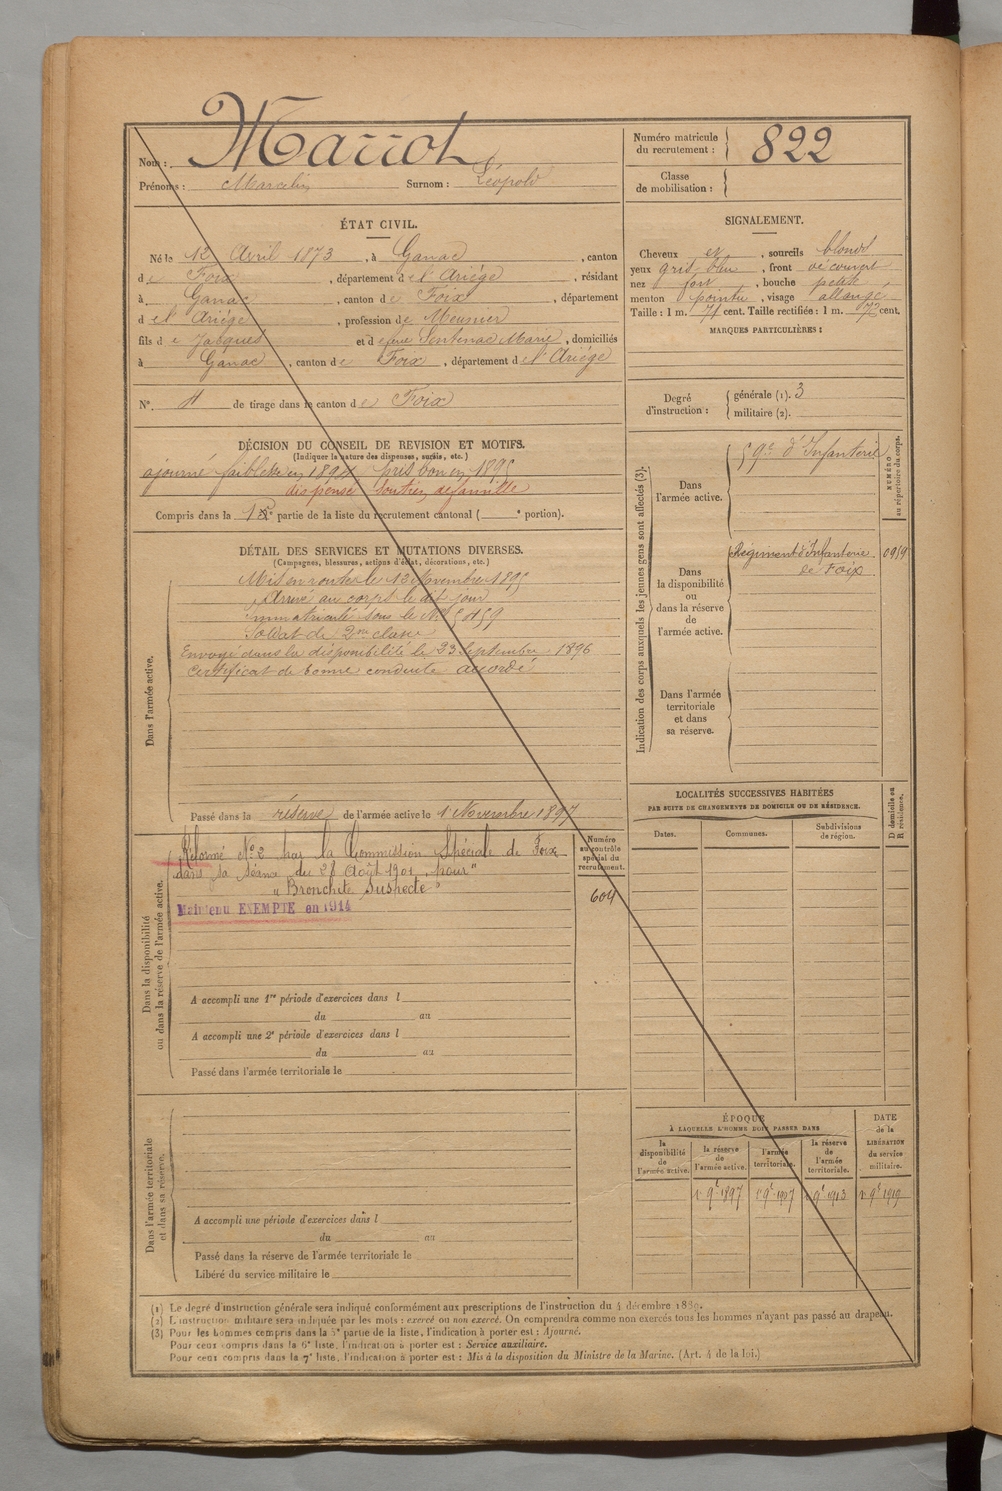 Nom : Marrot
Prénoms : Marcelin Surnom : Léopold
Numéro matricule du recrutement : 822
Classe de mobilisation :
ÉTAT CIVIL.
Né le 12 Avril 1873, à Ganac, canton
de Foix, département de l'Ariège, résidant
à Ganac, canton de Foix, département
de l'Ariège, profession de Meunier
fils de Jacques et de Sentenac Marie, domiciliés
à Ganac, canton de Foix, département de l'Ariège
N° 11 de tirage dans le canton de Foix
SIGNALEMENT.
Cheveux et, sourcils blonds
yeux gris bleu, front découvert
nez fort, bouche petite
menton pointu, visage allongé
Taille : 1 m. 71 cent. Taille rectifiée : 1 m. 72 cent.
MARQUES PARTICULIÈRES :
Degré d'instruction : générale (1). 3
militaire (2).
DÉCISION DU CONSEIL DE REVISION ET MOTIFS.
(Indiquer la nature des dispenses, sursis, etc.)
ajourné faiblesse en 1894 pris bon en 1895
dispensé soutien de famille
Compris dans la 1re partie de la liste du recrutement cantonal ( e portion).
DÉTAIL DES SERVICES ET MUTATIONS DIVERSES.
(Campagnes, blessures, actions d'éclat, décorations, etc.)
Dans l'armée active.
Mis en route le 13 Novembre 1895
Arrivé au corps le dit jour
immatriculé sous le N°
Soldat de 2me classe
Envoyé dans la disponibilité le Septembre 1896
Certificat de bonne conduite accordé
Passé dans la réserve de l'armée active le 1 Novembre 1897
Indication des corps auxquels les jeunes gens sont affectés (3).
NUMÉRO au répertoire du corps.
Dans l'armée active.
59e d'Infanterie
Dans la disponibilité ou dans la réserve de l'armée active.
Régiment d'Infanterie 0959
de Foix
Dans l'armée territoriale et dans sa réserve.
LOCALITÉS SUCCESSIVES HABITÉES
PAR SUITE DE CHANGEMENTS DE DOMICILE OU DE RÉSIDENCE.
Dates. Communes. Subdivisions de région. D domicile ou R résidence.
Dans la disponibilité ou dans la réserve de l'armée active.
Numéro au contrôle spécial du recrutement.
604
Réformé N° 2 par la Commission Spéciale de Foix
dans sa séance du 28 Août 1901, pour
"Bronchite Suspecte"
Maintenu EXEMPTE en 1914
A accompli une 1re période d'exercices dans l
du au
A accompli une 2e période d'exercices dans l
du au
Passé dans l'armée territoriale le
Dans l'armée territoriale et dans sa réserve.
A accompli une période d'exercices dans l
du au
Passé dans la réserve de l'armée territoriale le
Libéré du service militaire le
ÉPOQUE
À LAQUELLE L'HOMME DOIT PASSER DANS
DATE de la LIBÉRATION du service militaire.
la disponibilité de l'armée active. la réserve de l'armée active. l'armée territoriale. la réserve de l'armée territoriale.
1er 9e 1897 1er 9e 1907 1er 9e 1913 1er 9e 1919
(1) Le degré d'instruction générale sera indiqué conformément aux prescriptions de l'instruction du 4 décembre 1889.
(2) L'instruction militaire sera indiquée par les mots : exercé ou non exercé. On comprendra comme non exercés tous les hommes n'ayant pas passé au drapeau.
(3) Pour les hommes compris dans la 5e partie de la liste, l'indication à porter est : Ajourné.
Pour ceux compris dans la 6e liste, l'indication à porter est : Service auxiliaire.
Pour ceux compris dans la 7e liste, l'indication à porter est : Mis à la disposition du Ministre de la Marine. (Art. 4 de la loi.)